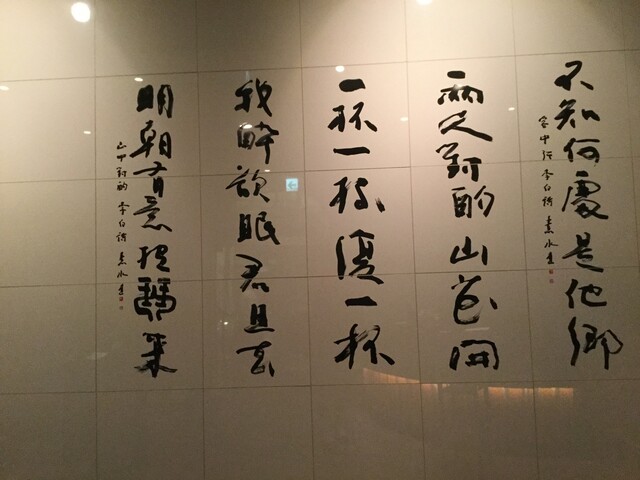 不知何處是他鄉
客中行 李白詩
兩人對酌山花開
一杯一杯復一杯
我醉欲眠君且去
明朝有意抱琴來
山中對酌 李白詩